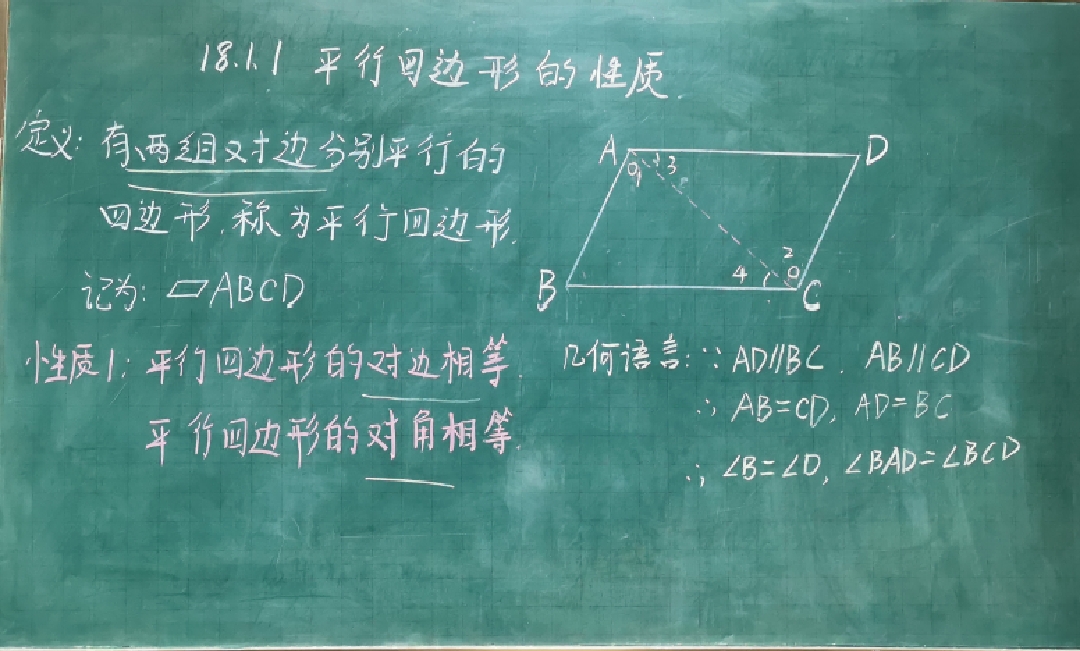 18.1.1 平行四边形的性质.
定义: 有两组对边分别平行的
四边形,称为平行四边形.
记为: ▱ABCD
性质1: 平行四边形的对边相等.
平行四边形的对角相等.
A
D
1
3
2
4
B
C
几何语言: ∵ AD//BC . AB//CD
∴ AB=CD, AD=BC
∴ ∠B=∠D, ∠BAD=∠BCD